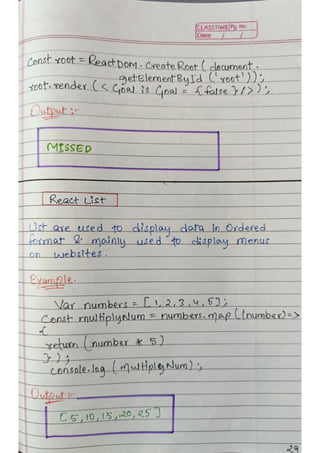 CLASSTIME Pg. No.
Date / /
Const root = ReactDOM. CreateRoot ( document.
getElementById ('root'));
root. render ( < Goal is Goal = { false } /> );
Output :-
MISSED
React List
List are used to display data in Ordered
format & mainly used to display menus
on websites.
Example.
Var numbers = [ 1, 2, 3, 4, 5 ];
Const multiplyNum = numbers. map ( (number) =>
{
return (number * 5)
} );
console. log ( multiplyNum) ;
Output :-
[ 5, 10, 15, 20, 25 ]
29